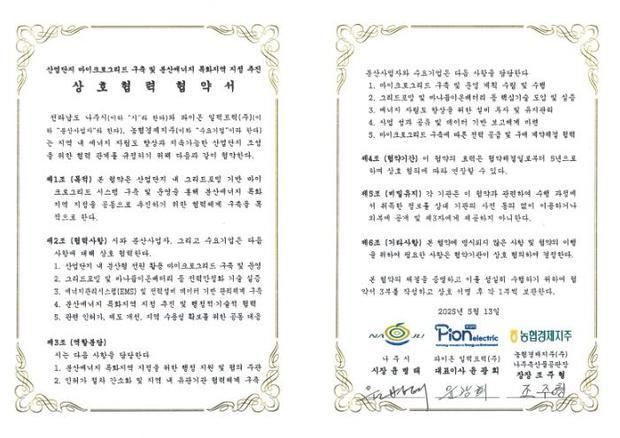 산업단지 마이크로그리드 구축 및 분산에너지 특화지역 지정 추진
상 호 협 력 협 약 서
전라남도 나주시(이하"시"라 한다)와 파이온 일렉트릭(주)(이
하"분산사업자"라 한다), 농협경제지주(이하"수요기업"이라 한다)
는 지역 내 에너지 자립도 향상과 지속가능한 산업단지 조성
을 위한 협력 관계를 규정하기 위해 다음과 같이 협약한다.
제1조 (목적) 본 협약은 산업단지 내 그리드포밍 기반 마이
크로그리드 시스템 구축 및 운영을 통해 분산에너지 특화
지역 지정을 공동으로 추진하기 위한 협력체계 구축을 목
적으로 한다.
제2조 (협력사항) 시와 분산사업자, 그리고 수요기업은 다음
사항에 대해 상호 협력한다.
1. 산업단지 내 분산형 전원 활용 마이크로그리드 구축 및 운영
2. 그리드포밍 및 바나듐이온배터리 등 전력안정화 기술 실증
3. 에너지관리시스템(EMS) 및 전력설비 데이터 기반 관리체계 구축
4. 분산에너지 특화지역 지정 추진 및 행정적기술적 협력
5. 관련 인허가, 제도 개선, 지역 수용성 확보를 위한 공동 대응
제3조 (역할분담)
시는 다음 사항을 담당한다
1. 분산에너지 특화지역 지정을 위한 행정 지원 및 협의 주관
2. 인허가 절차 간소화 및 지역 내 유관기관 협력체계 구축
분산사업자와 수요기업은 다음 사항을 담당한다
1. 마이크로그리드 구축 및 운영 계획 수립 및 수행
2. 그리드포밍 및 바나듐이온배터리 등 핵심기술 도입 및 실증
3. 에너지 자립도 향상을 위한 설비 투자 및 유지관리
4. 사업 성과 공유 및 데이터 기반 보고체계 마련
5. 마이크로그리드 구축에 따른 전력 공급 및 구매 계약체결 협력
제4조 (협약기간) 이 협약의 효력은 협약체결일로부터 5년으로
하며 상호 협의에 따라 연장할 수 있다.
제5조 (비밀유지) 각 기관은 이 협약과 관련하여 수행 과정에
서 취득한 정보를 상대 기관의 사전 동의 없이 이용하거나
외부에 공개 및 제3자에게 제공하지 아니한다.
제6조 (기타사항) 본 협약에 명시되지 않은 사항 및 협약의 이행
을 위하여 필요한 사항은 협약기관이 상호 협의하여 결정한다.
본 협약의 체결을 증명하고 이를 성실히 수행하기 위하여 협
약서 3부를 작성하고 상호 서명 후 각 1부씩 보관한다.
2025년 5월 13일
NAJU Pion electric 농협경제지주
나 주 시
시장 윤 병 태
파이온 일렉트릭(주)
대표이사 윤 광 희
농협경제지주(주)
나주축산물공판장
장장 조 주 형
윤병태 윤광희 조주형